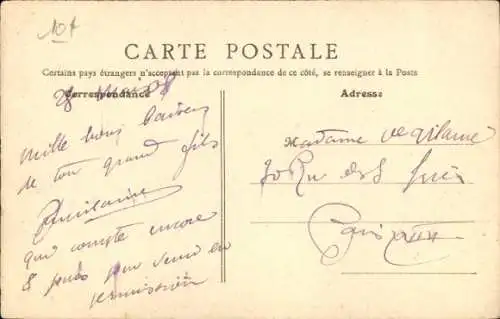 10f
CARTE POSTALE
Certains pays étrangers n'acceptant pas la correspondance de ce côté, se renseigner à la Poste
Correspondance
Adresse
28
Mille bons baisers
de ton grand fils
qui compte encore
8 jours pour venir en
permission
Madame
70 Rue des
Paris